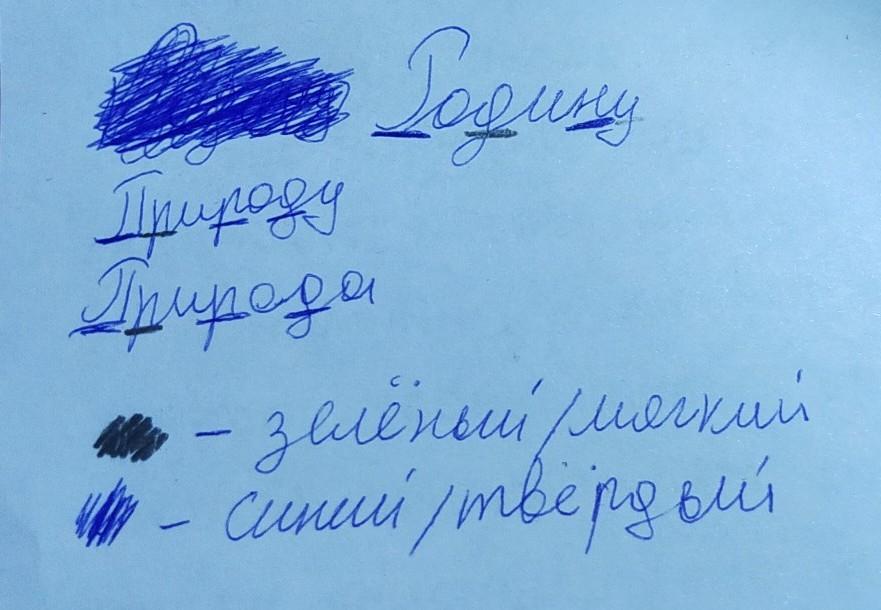 Родину
Природу
Природа
- зелёный/мягкий
- синий/твёрдый